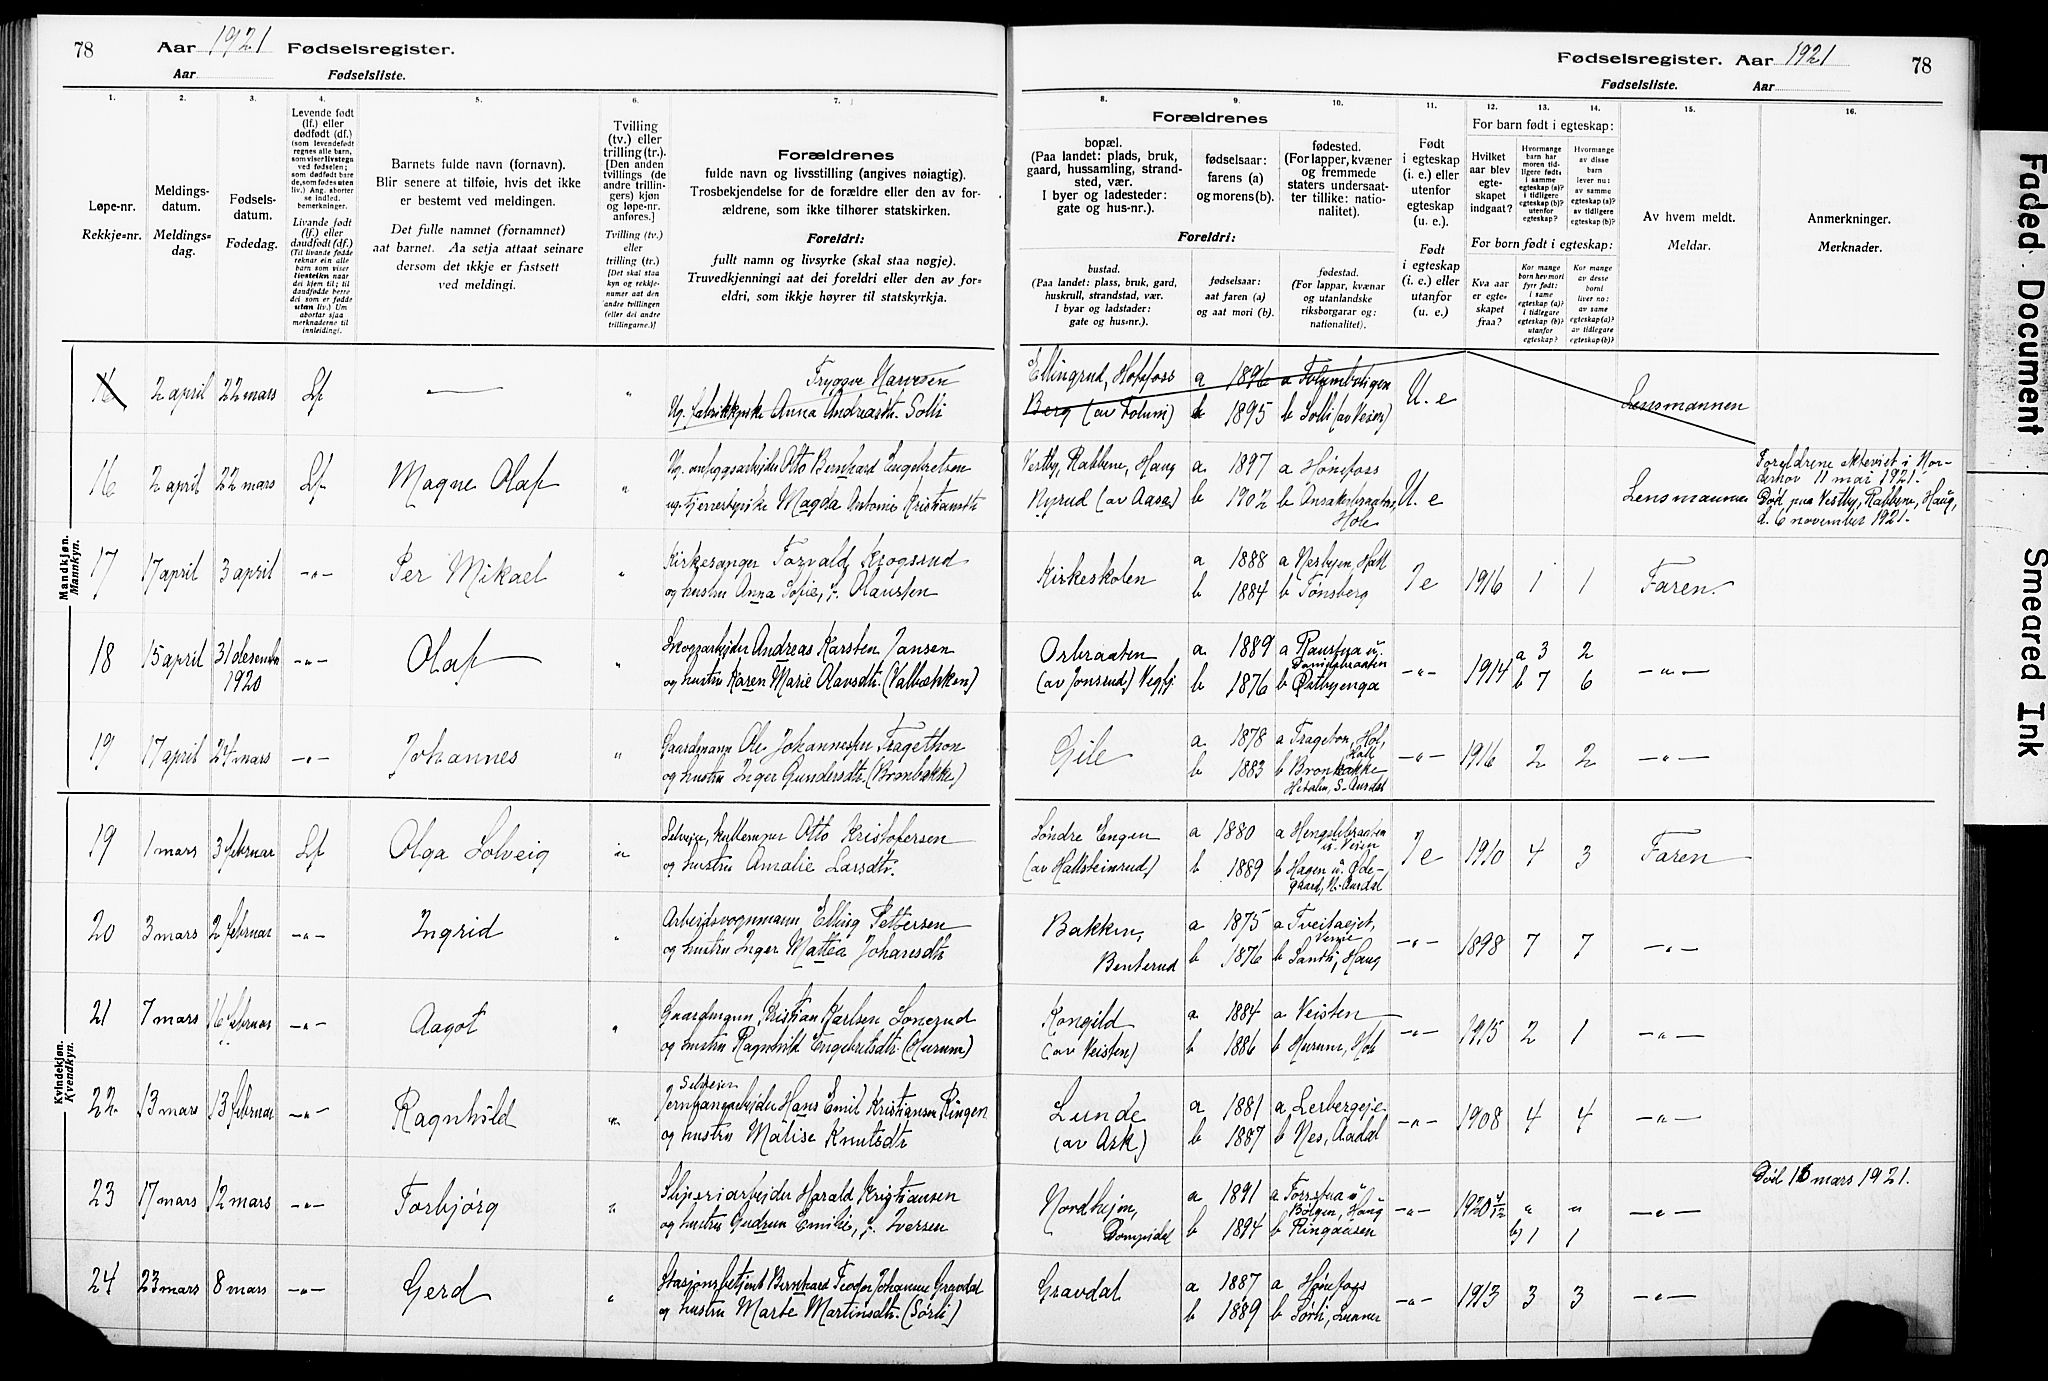 78 Aar 1921 Fødselsregister.
Aar Fødselsliste.
1. 2. 3. 4. 5. 6. 7.
Løpe-nr.
Rekkje=nr.
Meldings-
datum.
Meldings=
dag.
Fødsels-
datum.
Fødedag.
Levende født
(lf.) eller
dødfødt (df.)
Livande født
(lf.) eller
daudfødt (df.)
Barnets fulde navn (fornavn).
Blir senere at tilføie, hvis det ikke
er bestemt ved meldingen.
Det fulle namnet (fornamnet)
aat barnet. Aa setja attaat seinare
dersom det ikkje er fastsett
ved meldingi.
Tvilling
(tv.) eller
trilling (tr.).
[Den anden
tvillings (de
andre trillin-
gers) kjøn
og løpe-nr.
anføres.]
Tvilling (tv.)
eller
trilling (tr.)
[Det skal staa
kyn og rekkje-
numer aat den
andre tvillingen
(eller dei andre
trillingarne.)]
Forældrenes
fulde navn og livsstilling (angives nøiagtig).
Trosbekjendelse for de forældre eller den av for-
ældrene, som ikke tilhører statskirken.
Foreldri:
fullt namn og livsyrke (skal staa nøgje).
Truvedkjenningi aat dei foreldri eller den av for-
eldri, som ikkje høyrer til statskyrkja.
Mandkjøn.
Mannkyn.
16 2 april 22 mars Lf — " Tryggve Narvesen
Ug. fabrikkpike Anna Andreasdtr. Solli
16 2 april 22 mars Lf Magne Olaf " Ug. anleggsarbejder Otto Bernhard Engebretsen
ug. tjenerpike Magda Antonie Kristiansdtr
17 17 april 3 april —"— Per Mikael " Kirkesanger Torvald Krogsrud
og hustru Anna Sofie, f. Olausten
18 15 april 31 desember
1920 —"— Olaf " Skogsarbejder Andreas Karsten Jansen
og hustru Karen Marie Olavsdtr. (Valbækken)
19 17 april 24 mars —"— Johannes " Gaardmann Ole Johannessen Tragethon
og hustru Inger Gundersdtr. (Bronbække)
Kvindekjøn.
Kvendkyn.
19 1 mars 3 februar Lf Olga Solveig " Selveier, kullemner Otto Kristofersen
og hustru Amalie Larsdtr.
20 3 mars 2 februar —"— Ingrid " Arbeidsvognmann Elling Pettersen
og hustru Inger Mattea Johansdtr
21 7 mars 16 februar —"— Aagot " Gaardmann Kristian Karlsen Sonerud
og hustru Ragnhild Engebretsdtr. (Hurum)
22. 13 mars 13 februar —"— Ragnhild " Selveier
Jernbanearbejder Hans Emil Kristiansen Ringen
og hustru Matise Knutsdtr
23 17 mars 12 mars —"— Torbjørg " Sliperiarbejder Harald Kristiansen
og hustru Gudrun Emilie, f. Iversen
24 23 mars 8 mars —"— Gerd " Stasjonsbetjent Bernhard Teodor Johannes Gravdal
og hustru Marte Martinsdtr. (Sørli)
Fødselsregister. Aar 1921 78
Fødselsliste. Aar
8. 9. 10. 11. 12. 13. 14. 15. 16.
Forældrenes
bopæl.
(Paa landet: plads, bruk,
gaard, hussamling, strand-
sted, vær.
I byer og ladesteder:
gate og hus-nr.).
fødselsaar:
farens (a)
og morens (b).
fødested.
(For lapper, kvæner
og fremmede
staters undersaat-
ter tillike: natio-
nalitet).
Foreldri:
bustad.
(Paa landet: plass, bruk, gard,
huskrull, strandstad, vær.
I byar og ladstader:
gate og hus-nr.).
fødselsaar:
aat faren (a)
og aat mori (b).
fødestad.
(For lappar, kvænar
og utanlandske
riksborgarar og:
nationalitet).
Født
i egteskap
(i. e.) eller
utenfor
egteskap
(u. e.).
Født
i egteskap
(i. e.) eller
utanfor
(u. e.)
For barn født i egteskap:
Hvilket
aar blev
egte-
skapet
indgaat?
For born født i egteskap:
Kva aar
er egte-
skapet
fraa?
Av hvem meldt.
Meldar.
Anmerkninger.
Merknader.
Ellingrud, Hofsfoss a 1896 a Tolumboligen
Berg (av Tolum) b 1895 b Solli (av Veien) U. e Lensmannen
Vestby, Rabbene, Haug a 1897 a Hønefoss
Nyrud (av Aasa) b 1902 b Ansakerbraaten,
Hole U. e Lensmannen Foreldrene ekteviet i Nor-
derhov 11 mai 1921.
Død paa Vestby, Rabbene, Haug,
d. 6 november 1921.
Kirkeskolen a 1888 a Nesbyen, Hall
b 1884 b Tønsberg I e 1916 1 1 Faren.
Orbraaten a 1889 a
(av Jonsrud) b 1876 b Østbyenga —"— 1914 a 3 2
b 7 6 —"—
Gile a 1878 a Trageton, Hol,
Hall
b 1883 b Bronbakke
Hedalen, S-Aurdal —"— 1916 2 2 —"—
Søndre Engen a 1880 a Hengslebraaten
u. Veien
(av Hallsteinrud) b 1889 b Hagen u. Øde-
gaard, N-Aurdal I e 1910 4 3 Faren
Bakken, a 1875 a Tveitaejet,
Benterud b 1876 b Sandli, Haug —"— 1898 7 7 —"—
Kongild a 1884 a Veisten
(av Veisten) b 1886 b Hurum, Hole —"— 1915 2 1 —"—
Lunde a 1881 a Lerbergeje
(av Ask) b 1887 b Nes, Aadal —"— 1908 4 4 —"—
Nordhejm, a 1891 a
Bølgen, Haug
b 1894 b —"— 1920 4/12 " "
b) 1 1 —"— Død 16 mars 1921.
Gravdal a 1887 a Hønefoss
b 1889 b Sørli, Lunner —"— 1913 3 3 —"—
Faded Document
Smeared Ink